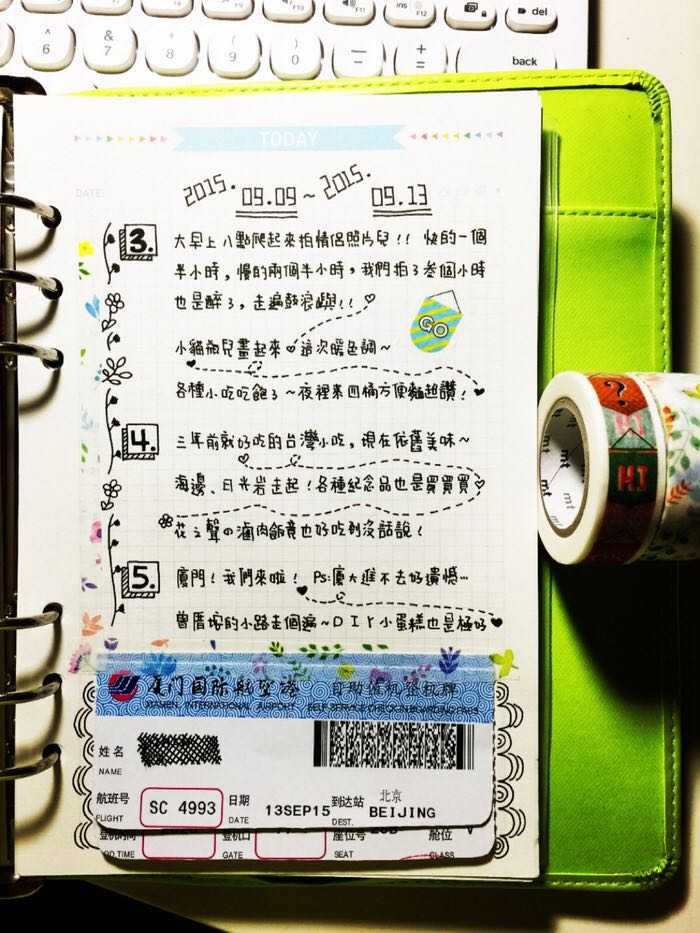 ^
6
&
7
*
8
(
9
)
0
—
+
=
F11
ins
F12
del
back
TODAY
DATE:
2015. 09.09 ~ 2015. 09.13
3. 大早上八點爬起來拍情侶照片兒!! 快的一個
半小時，慢的兩個半小時，我們拍了叁個小時
也是醉了，走遍鼓浪嶼!!
GO
小貓瓶兒畫起來 這次暖色調~
各種小吃吃飽了~夜裡來四桶方便麵超讚!
4. 三年前就好吃的台灣小吃，現在依舊美味~
海邊、日光岩走起!各種紀念品也是買買買
花之聲の滷肉飯竟也好吃到沒話說!
5. 廈門! 我們來啦! Ps:廈大進不去好遺憾…
曾厝垵的小路走個遍~DIY小蛋糕也是極好
厦门国际航空港 自助值机登机牌
XIAMEN INTERNATIONAL AIRPORT SELF-SERVICE CHECK-IN BOARDING PASS
姓名
NAME
航班号 SC 4993 日期 13SEP15 到达站 北京
FLIGHT DATE DEST. BEIJING
登机时间 登机口 座位号 舱位
BD TIME GATE SEAT CLASS
mt
mt
HI
HI